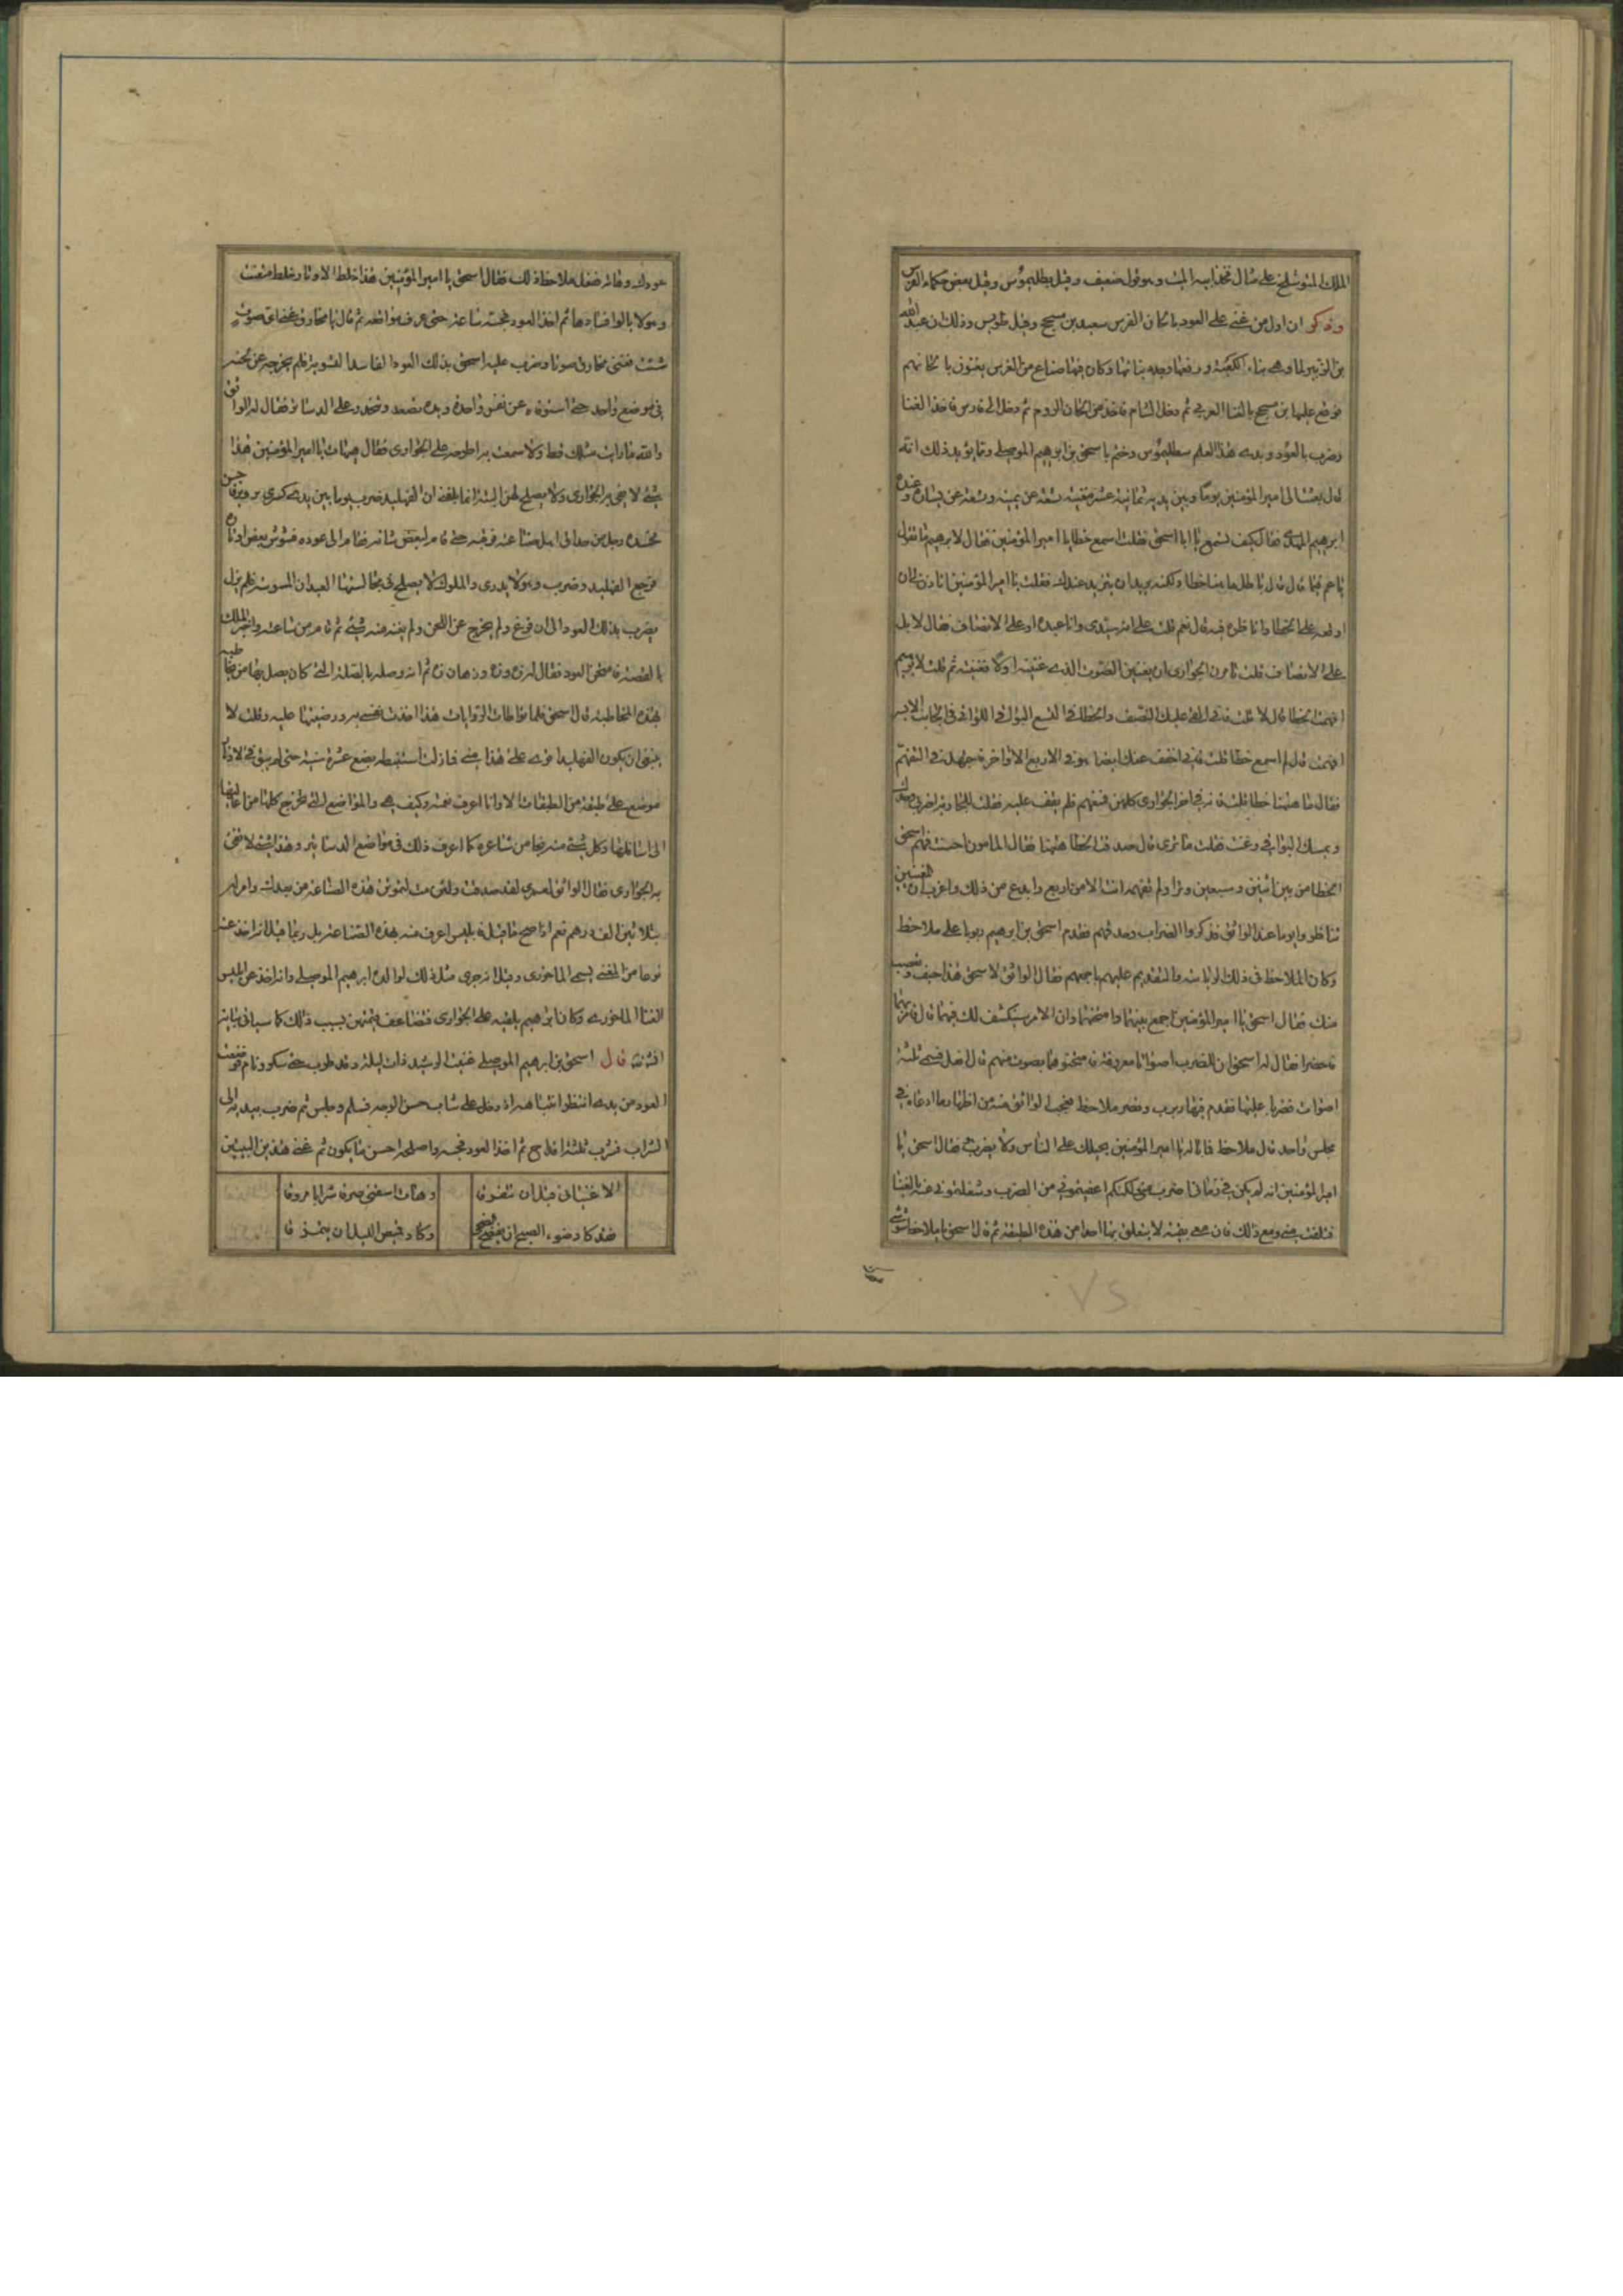 الملك المتوشلخ على مثال فخذ ابيه الميت وهو قول ضعيف وقيل بطلميوس وقيل بعض حكماء الفرس
وذكر ان اول من غنى على العود بالحان الفرس سعيد بن مسجح وقيل طويس وذلك ان عبد الله
بن الزبير لما وهى بناء الكعبة ورفعها وجدد بنائها وكان فيها صناع من الفرس يغنون بالحانهم
فوقع عليها بن مسجح بالغنا العربي ثم دخل الشام فاخذ من الحان الروم ثم دخل الى فارس فاخذ الغنا
وضرب بالعود وبدء هذا العلم بطلميوس وختم باسحق بن ابرهيم الموصلي ومما يؤيد ذلك انه
قال بعث الى امير المؤمنين يوما وبين يديه ثمانية عشر مغنية تسعة عن يمينه وتسعة عن يساره وعنده
ابرهيم المهدي فقال كيف تسمع يا ابا اسحق فقلت اسمع خطا يا امير المؤمنين فقال لابرهيم ما تقول
يا عم فيما قال قال باطل ما هنا خطا ولكنه يريد ان يتزيد عندك فقلت يا امير المؤمنين اتاذن لى ان
اوقعه على الخطا واناظره فيه قال نعم قلت على انه سيدى وانا عبده او على الانصاف فقال لا بل
على الانصاف قلت تامرن الجوارى ان يغنين الصوت الذى غنينه اولا فغنينه ثم قلت لابرهيم
افهمت الخطا قال لا قلت فانى القى عليك النصف والخطا فى التسع البواقى اللواتى فى الجانب الايسر
افهمت قال لم اسمع خطا قلت فانى اخفف عنك ايضا هو فى الاربع الاواخر فاجهد فى التفهم
فقال ما هاهنا خطا قلت فانه فى احدى الجوارى كلهن فسمعهم فلم يقف عليه فقلت للجارية اضربى وحدك
ويمسك البواقى وغنت فقلت ما ترى قال صدقت الخطا هاهنا فقال المامون احسنت فهم اسحق
الخطا من بين اثنين وسبعين وترا ولم تفهمه انت الا من اربع وابدع من ذلك واغرب ان المغنين
تناظروا يوما عند الواثق فذكروا الضراب وحذقهم فقدم اسحق بن ابرهيم ربربا على ملاحظ
وكان الملاحظ فى ذلك الرياسة والتقديم عليهم باجمعهم فقال الواثق لاسحق هذا حيف وتعصب
منك فقال اسحق يا امير المؤمنين اجمع بينهما وامتحنهما وان الامر سيكشف لك فيهما قال فامر بهما
فاحضرا فقال له اسحق ان للضرب اصواتا معروفة فامتحنوهما بصوت منهم قال افعل فسمى ثلثة
اصوات فضربا عليها فتقدم فيها ربرب وقصر ملاحظ فعجب الواثق منه من اظهار ما ادعاه فى
مجلس واحد قال ملاحظ فما باله يا امير المؤمنين يحيلك على الناس ولا يضرب هو فقال اسحق يا
امير المؤمنين انه لم يكن فى زمانى اضرب منى لكنكم اعفيتمونى من الضرب وشغلتمونى عنه بالغنا
فتلفت منى ومع ذلك فان معى بقية لا يتعلق بها احد من هذه الطبقة ثم قال اسحق يا ملاحظ شوش
عودك وهاته ففعل ملاحظ ذلك فقال اسحق يا امير المؤمنين هذا خلط الاوتار خلط متعنت
وهو لا يالوا فسادها ثم اخذ العود فجسه ساعة حتى عرف مواقعه ثم قال يا مخارق غنى اى صوت
شئت فغنى مخارق صوتا وضرب عليه اسحق بذلك العود الفاسد التسوية فلم يخرجه عن لحنه
فى موضع واحد حتى استوفاه عن نفس واحدة ويده تصعد وتنحدر على الدساتر فقال له الواثق
والله ما رايت مثلك قط ولا سمعت به اطرحه على الجوارى فقال هيهات يا امير المؤمنين هذا
شئ لا يفى به الجوارى ولا يصلح لهن البتة انما بلغنى ان الفهليد ضرب يوما بين يدى كسرى برويز فاحسن
فحسده رجل من حذاق اهل صناعته فرقبه حتى قام لبعض شانه فقام الى عوده فشوش بعض اوتاره
فرجع الفهليد وضرب وهو لا يدرى والملوك لا يصلح فى مجالسها العيدان المسوسة فلم يزل
يضرب بذلك العود الى ان فرغ ولم يخرج عن اللحن ولم يفته منه شئ ثم قام من ساعته واخبر الملك
بالقصة فامتحن العود فقال له زه وزه وزهان زه ثم انه وصله بالصلة التى كان يصل بها من يخاطبه
بهذه المخاطبة قال اسحق فلما تواطات الروايات هذا اخذت نفسى به وروضتها عليه وقلت لا
ينبغى ان يكون الفهليد اقوى على هذا منى فما زلت استنبطه بضع عشرة سنة حتى لم يبق فى الاوتار
موضع على طبقة من الطبقات الا وانا اعرف نغمته وكيف هى والمواضع التى تخرج كلها من اعاليها
الى اسافلها وكل شئ منه يجانس شاعره كما اعرف ذلك فى مواضع الدساتير وهذا شئ لا تفى
به الجوارى فقال الواثق لعمرى لقد صدقت ولئن مت لتموتن هذه الصناعة من بعدك وامر له
بثلاثين الف درهم نعم اذا صح ما قيل فابليس اعرف منه بهذه الصناعة بل ربما قيل انه اخذ عنه
نوعا من الغنى يسمى الماخورى وقيل انه جرى مثل ذلك لوالده ابرهيم الموصلى وانه اخذ عن ابليس
الغنا الماخورى وكان ابرهيم يلقيه على الجوارى فتضاعف قيمتهن بسبب ذلك كما سياتى بيانه
قال اسحق بن ابرهيم الموصلى غنيت الرشيد ذات ليلة وقد طرب حتى سكر ونام فوضعت
العود من يدى انتظر انتباهه اذ دخل على شاب حسن الوجه فسلم وجلس ثم ضرب بيده الى
الشراب فشرب ثلثة اقداح ثم اخذ العود فجسه واصلحه احسن ما يكون ثم غنى هذين البيتين
الا غنيانى قبل ان نتفرقا
وهات اسقنى صرفا شرابا مروقا
فقد كاد ضوء الصبح ان يفضح الدجى
وكاد قميص الليل ان يتمزقا